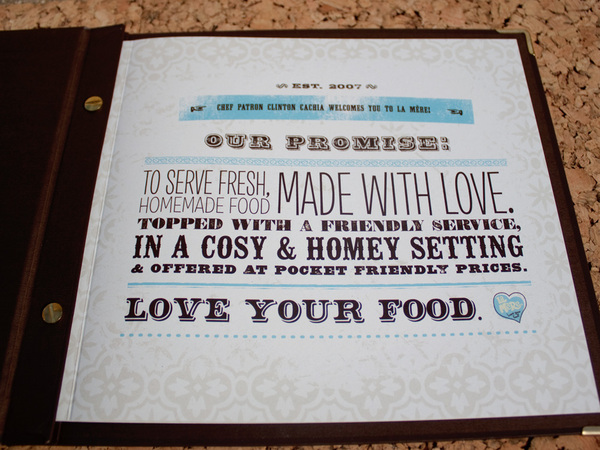 EST. 2007
CHEF PATRON CLINTON CACHIA WELCOMES YOU TO LA MÈRE!
OUR PROMISE:
TO SERVE FRESH, HOMEMADE FOOD MADE WITH LOVE.
TOPPED WITH A FRIENDLY SERVICE,
IN A COSY & HOMEY SETTING
& OFFERED AT POCKET FRIENDLY PRICES.
LOVE YOUR FOOD.